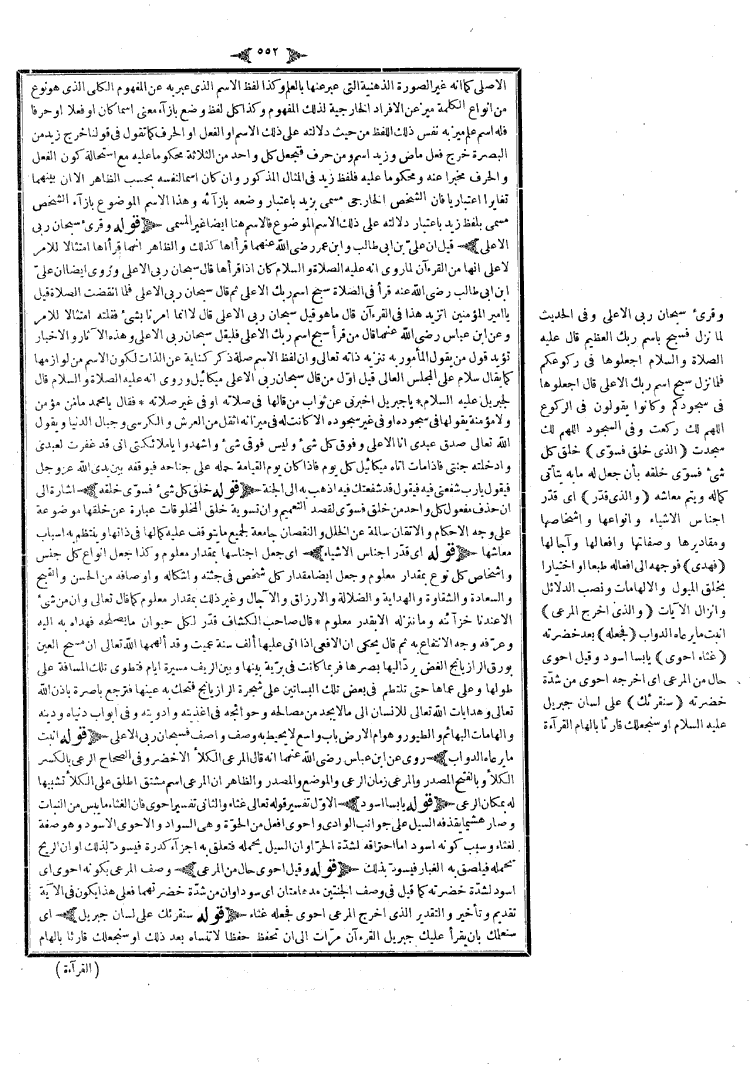 ٥٥٢
الاصلى كما انه غير الصورة الذهنية التى عبر عنها بالعلم وكذا لفظ الاسم الذى عبر به عن المفهوم الكلى الذى هو نوع
من انواع الكلمة ميز عن الافراد الخارجية لذلك المفهوم وكذا كل لفظ وضع بازآء معنى اسما كان او فعلا او حرفا
فله اسم علم ميز به نفس ذلك اللفظ من حيث دلالته على ذلك الاسم او الفعل او الحرف كما تقول فى قولنا خرج زيد من
البصرة خرج فعل ماض وزيد اسم ومن حرف فتجعل كل واحد من الثلاثة محكوما عليه مع استحالة كون الفعل
والحرف مخبرا عنه ومحكوما عليه فلفظ زيد فى المثال المذكور وان كان اسما لنفسه بحسب الظاهر الا ان بينهما
تغايرا اعتباريا فان الشخص الخارجى مسمى بزيد باعتبار وضعه بازآئه وهذا الاسم الموضوع بازآء الشخص
مسمى بلفظ زيد باعتبار دلالته على ذلك الاسم الموضوع فالاسم هنا ايضا غير المسمى ﴿قوله وقرئ سبحان ربى
الاعلى﴾ قيل ان على بن ابى طالب وابن عمر رضى الله عنهما قرأاها كذلك والظاهر انهما قرأاها امتثالا للامر
لا على انها من القرءآن لما روى انه عليه الصلاة والسلام كان اذا قرأها قال سبحان ربى الاعلى وروى ايضا ان على
ابن ابى طالب رضى الله عنه قرأ فى الصلاة سبح اسم ربك الاعلى ثم قال سبحان ربى الاعلى فلما انقضت الصلاة قيل
يا امير المؤمنين اتزيد هذا فى القرءآن قال ما هو قيل سبحان ربى الاعلى قال لا انما امرنا بشئ فقلته امتثالا للامر
وعن ابن عباس رضى الله عنهما قال من قرأ سبح اسم ربك الاعلى فليقل سبحان ربى الاعلى وهذه الآثار والاخبار
تؤيد قول من يقول المأمور به تنزيه ذاته تعالى وان لفظ الاسم صلة ذكر كناية عن الذات لكون الاسم من لوازمها
كما يقال سلام على المجلس العالى قيل اول من قال سبحان ربى الاعلى ميكائيل وروى انه عليه الصلاة والسلام قال
لجبريل عليه السلام * يا جبريل اخبرنى عن ثواب من قالها فى صلاته او فى غير صلاته * فقال يا محمد ما من مؤمن
ولا مؤمنة يقولها فى سجوده او فى غير سجوده الا كانت له فى ميزانه اثقل من العرش والكرسى وجبال الدنيا ويقول
الله تعالى صدق عبدى انا الاعلى وفوق كل شئ وليس فوقى شئ واشهدوا يا ملائكتى انى قد غفرت لعبدى
وادخلته جنتى فاذا مات اتاه ميكائيل كل يوم فاذا كان يوم القيامة حمله على جناحه فيوقفه بين يدى الله عز وجل
فيقول يارب شفعنى فيه فيقول قد شفعتك فيه اذهب به الى الجنة ﴿قوله خلق كل شئ فسوى خلقه﴾ اشارة الى
ان حذف مفعول كل واحد من خلق فسوى لقصد التعميم وان تسوية خلق المخلوقات عبارة عن خلقها موضوعة
على وجه الاحكام والاتقان سالمة عن الخلل والنقصان جامعة لجميع ما يتوقف عليه كمالها فى ذاتها وينتظم به اسباب
معاشها ﴿قوله اى قدر اجناس الاشياء﴾ اى جعل اجناسها بمقدار معلوم وكذا جعل انواع كل جنس
واشخاص كل نوع بمقدار معلوم وجعل ايضا مقدار كل شخص فى جثته واشكاله واوصافه من الحسن والقبح
والسعادة والشقاوة والهداية والضلالة والارزاق والآجال وغير ذلك بمقدار معلوم كما قال تعالى وان من شئ
الا عندنا خزآئنه وما ننزله الا بقدر معلوم * قال صاحب الكشاف قدر لكل حيوان ما يصلحه فهداه به اليه
وعرفه وجه الانتفاع به ثم قال يحكى ان الافعى اذا اتى عليها ألف سنة عميت وقد ألهمها الله تعالى ان مسح العين
بورق الرازيانج الغض يرد اليها بصرها فربما كانت فى برية بينها وبين الريف مسيرة ايام فتطوى تلك المسافة على
طولها وعلى عماها حتى تلتطم فى بعض تلك البساتين على شجرة الرازيانج فتحك به عينها فترجع باصرة باذن الله
تعالى وهدايات الله تعالى للانسان الى مالا يحد من مصالحه وحوائجه فى اغذيته وادويته وفى ابواب دنياه ودينه
والهامات البهائم والطيور وهوام الارض باب واسع لا يحيط به وصف واصف فسبحان ربى الاعلى ﴿قوله انبت
ما يرعاه الدواب﴾ روى عن ابن عباس رضى الله عنهما انه قال المرعى الكلأ الاخضر وفى الصحاح الرعى بالكسر
الكلأ وبالفتح المصدر والمرعى زمان الرعى والموضع والمصدر والظاهر ان المرعى اسم مشتق اطلق على الكلأ تشبيها
له بمكان الرعى ﴿قوله يابسا اسود﴾ الاول تفسير قوله تعالى غثاء والثانى تفسير احوى فان الغثاء ما يبس من النبات
وصار هشيما يقذفه السيل على جوانب الوادى واحوى افعل من الحوة وهى السواد والاحوى الاسود وهو صفة
لغثاء وسبب كونه اسود اما احترافه لشدة الحر او ان السيل يحمله فتعلق به اجزآء كدرة فيسود لذلك او ان الريح
تحمله فيلصق به الغبار فيسود بذلك ﴿قوله وقيل احوى حال من المرعى﴾ وصف المرعى بكونه احوى اى
اسود لشدة خضرته كما قيل فى وصف الجنتين مدهامتان اى سوداوان من شدة خضرتهما فعلى هذا يكون فى الآية
تقديم وتأخير والتقدير الذى اخرج المرعى احوى فجعله غثاء ﴿قوله سنقرئك على لسان جبريل﴾ اى
سنعلمك بان يقرأ عليك جبريل القرءآن مرات الى ان تحفظ حفظا لا تنساه بعد ذلك او سنجعلك قارئا بالهام
(القرآءة)
وقرئ سبحان ربى الاعلى وفى الحديث
لما نزل فسبح باسم ربك العظيم قال عليه
الصلاة والسلام اجعلوها فى ركوعكم
فلما نزل سبح اسم ربك الاعلى قال اجعلوها
فى سجودكم وكانوا يقولون فى الركوع
اللهم لك ركعت وفى السجود اللهم لك
سجدت (الذى خلق فسوى) خلق كل
شئ فسوى خلقه بأن جعل له ما به يتأتى
كماله ويتم معاشه (والذى قدر) اى قدر
اجناس الاشياء وانواعها واشخاصها
ومقاديرها وصفاتها وافعالها وآجالها
(فهدى) فوجهه الى افعاله طبعا او اختيارا
بخلق الميول والالهامات ونصب الدلائل
وانزال الآيات (والذى اخرج المرعى)
انبت ما يرعاه الدواب (فجعله) بعد خضرته
(غثاء احوى) يابسا اسود وقيل احوى
حال من المرعى اى اخرجه احوى من شدة
خضرته (سنقرئك) على لسان جبريل
عليه السلام او سنجعلك قارئا بالهام القرآءة